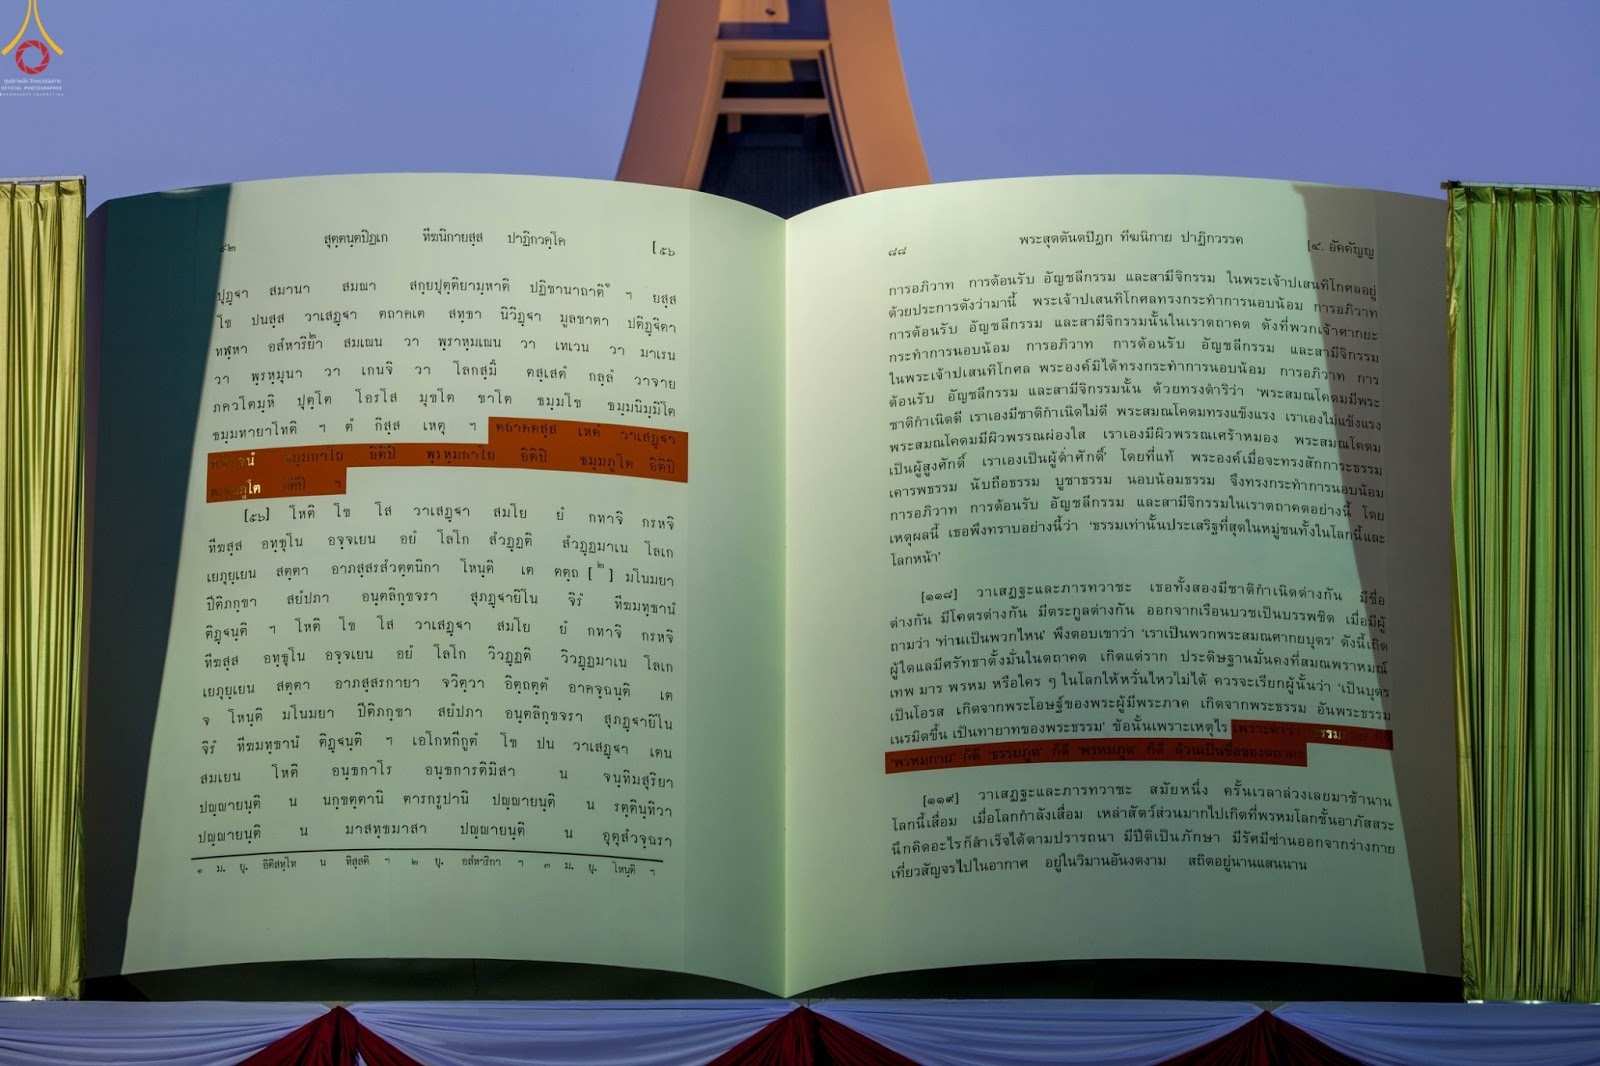 ศูนย์ภาพนิ่ง วัดพระธรรมกาย
OFFICIAL PHOTOGRAPHER
๕๒ สุตฺตนฺตปิฏเก ทีฆนิกายสฺส ปาฏิกวคฺโค [๕๖
ปุฏฺฐา สมานา สมณา สกฺยปุตฺติยามฺหาติ ปฏิชานาถาติ ฯ ยสฺส
โข ปนสฺส วาเสฏฺฐา ตถาคเต สทฺธา นิวิฏฺฐา มูลชาตา ปติฏฺฐิตา
ทฬฺหา อสํหาริยา๒ สมเณน วา พฺราหฺมเณน วา เทเวน วา มาเรน
วา พฺรหฺมุนา วา เกนจิ วา โลกสฺมิํ ตสฺเสตํ กลฺลํ วาจาย
ภควโตมฺหิ ปุตฺโต โอรโส มุขโต ชาโต ธมฺมโช ธมฺมนิมฺมิโต
ธมฺมทายาโทติ ฯ ตํ กิสฺส เหตุ ฯ ตถาคตสฺส เหตํ วาเสฏฺฐา
ธมฺมกาโย อิติปิ พฺรหฺมกาโย อิติปิ ธมฺมภูโต อิติปิ
อิติปิ ฯ
[๕๖] โหติ โข โส วาเสฏฺฐา สมโย ยํ กทาจิ กรหจิ
ทีฆสฺส อทฺธุโน อจฺจเยน อยํ โลโก สํวฏฺฏติ สํวฏฺฏมาเน โลเก
เยภุยฺเยน สตฺตา อาภสฺสรสํวตฺตนิกา โหนฺติ เต ตตฺถ [๒] มโนมยา
ปีติภกฺขา สยํปภา อนฺตลิกฺขจรา สุภฏฺฐายิโน จิรํ ทีฆมทฺธานํ
ติฏฺฐนฺติ ฯ โหติ โข โส วาเสฏฺฐา สมโย ยํ กทาจิ กรหจิ
ทีฆสฺส อทฺธุโน อจฺจเยน อยํ โลโก วิวฏฺฏติ วิวฏฺฏมาเน โลเก
เยภุยฺเยน สตฺตา อาภสฺสรกายา จวิตฺวา อิตฺถตฺตํ อาคจฺฉนฺติ เต
จ โหนฺติ มโนมยา ปีติภกฺขา สยํปภา อนฺตลิกฺขจรา สุภฏฺฐายิโน
จิรํ ทีฆมทฺธานํ ติฏฺฐนฺติ ฯ เอโกทกีภูตํ โข ปน วาเสฏฺฐา เตน
สมเยน โหติ อนฺธกาโร อนฺธการติมิสา น จนฺทิมสุริยา
ปญฺญายนฺติ น นกฺขตฺตานิ ตารกรูปานิ ปญฺญายนฺติ น รตฺตินฺทิวา
ปญฺญายนฺติ น มาสทฺธมาสา ปญฺญายนฺติ น อุตุสํวจฺฉรา
๑ ม. ยุ. อิติสทฺโท น ทิสฺสติ ฯ ๒ ยุ. อสํหาริกา ฯ ๓ ม. ยุ. โหนฺติ ฯ
๘๘ พระสุตตันตปิฎก ทีฆนิกาย ปาฏิกวรรค [๔. อัคคัญญ
การอภิวาท การต้อนรับ อัญชลีกรรม และสามีจิกรรม ในพระเจ้าปเสนทิโกศลอยู่
ด้วยประการดังว่ามานี้ พระเจ้าปเสนทิโกศลทรงกระทำการนอบน้อม การอภิวาท
การต้อนรับ อัญชลีกรรม และสามีจิกรรมนั้นในเราตถาคต ดังที่พวกเจ้าศากยะ
กระทำการนอบน้อม การอภิวาท การต้อนรับ อัญชลีกรรม และสามีจิกรรม
ในพระเจ้าปเสนทิโกศล พระองค์มิได้ทรงกระทำการนอบน้อม การอภิวาท การ
ต้อนรับ อัญชลีกรรม และสามีจิกรรมนั้น ด้วยทรงดำริว่า ‘พระสมณโคดมมีพระ
ชาติกำเนิดดี เราเองมีชาติกำเนิดไม่ดี พระสมณโคดมทรงแข็งแรง เราเองไม่แข็งแรง
พระสมณโคดมมีผิวพรรณผ่องใส เราเองมีผิวพรรณเศร้าหมอง พระสมณโคดม
เป็นผู้สูงศักดิ์ เราเองเป็นผู้ต่ำศักดิ์’ โดยที่แท้ พระองค์เมื่อจะทรงสักการะธรรม
เคารพธรรม นับถือธรรม บูชาธรรม นอบน้อมธรรม จึงทรงกระทำการนอบน้อม
การอภิวาท การต้อนรับ อัญชลีกรรม และสามีจิกรรมในเราตถาคตอย่างนี้ โดย
เหตุผลนี้ เธอพึงทราบอย่างนี้ว่า ‘ธรรมเท่านั้นประเสริฐที่สุดในหมู่ชนทั้งในโลกนี้และ
โลกหน้า’
[๑๑๘] วาเสฏฐะและภารทวาชะ เธอทั้งสองมีชาติกำเนิดต่างกัน มีชื่อ
ต่างกัน มีโคตรต่างกัน มีตระกูลต่างกัน ออกจากเรือนบวชเป็นบรรพชิต เมื่อมีผู้
ถามว่า ‘ท่านเป็นพวกไหน’ พึงตอบเขาว่า ‘เราเป็นพวกพระสมณศากยบุตร’ ดังนี้เถิด
ผู้ใดแลมีศรัทธาตั้งมั่นในตถาคต เกิดแต่ราก ประดิษฐานมั่นคงที่สมณพราหมณ์
เทพ มาร พรหม หรือใคร ๆ ในโลกให้หวั่นไหวไม่ได้ ควรจะเรียกผู้นั้นว่า ‘เป็นบุตร
เป็นโอรส เกิดจากพระโอษฐ์ของพระผู้มีพระภาค เกิดจากพระธรรม อันพระธรรม
เนรมิตขึ้น เป็นทายาทของพระธรรม’ ข้อนั้นเพราะเหตุไร เพราะคำว่า ‘ธรรมกาย’ ก็ดี
‘พรหมกาย’ ก็ดี ‘ธรรมภูต’ ก็ดี ‘พรหมภูต’ ก็ดี ล้วนเป็นชื่อของตถาคต
[๑๑๙] วาเสฏฐะและภารทวาชะ สมัยหนึ่ง ครั้นเวลาล่วงเลยมาช้านาน
โลกนี้เสื่อม เมื่อโลกกำลังเสื่อม เหล่าสัตว์ส่วนมากไปเกิดที่พรหมโลกชั้นอาภัสสระ
นึกคิดอะไรก็สำเร็จได้ตามปรารถนา มีปีติเป็นภักษา มีรัศมีซ่านออกจากร่างกาย
เที่ยวสัญจรไปในอากาศ อยู่ในวิมานอันงดงาม สถิตอยู่นานแสนนาน